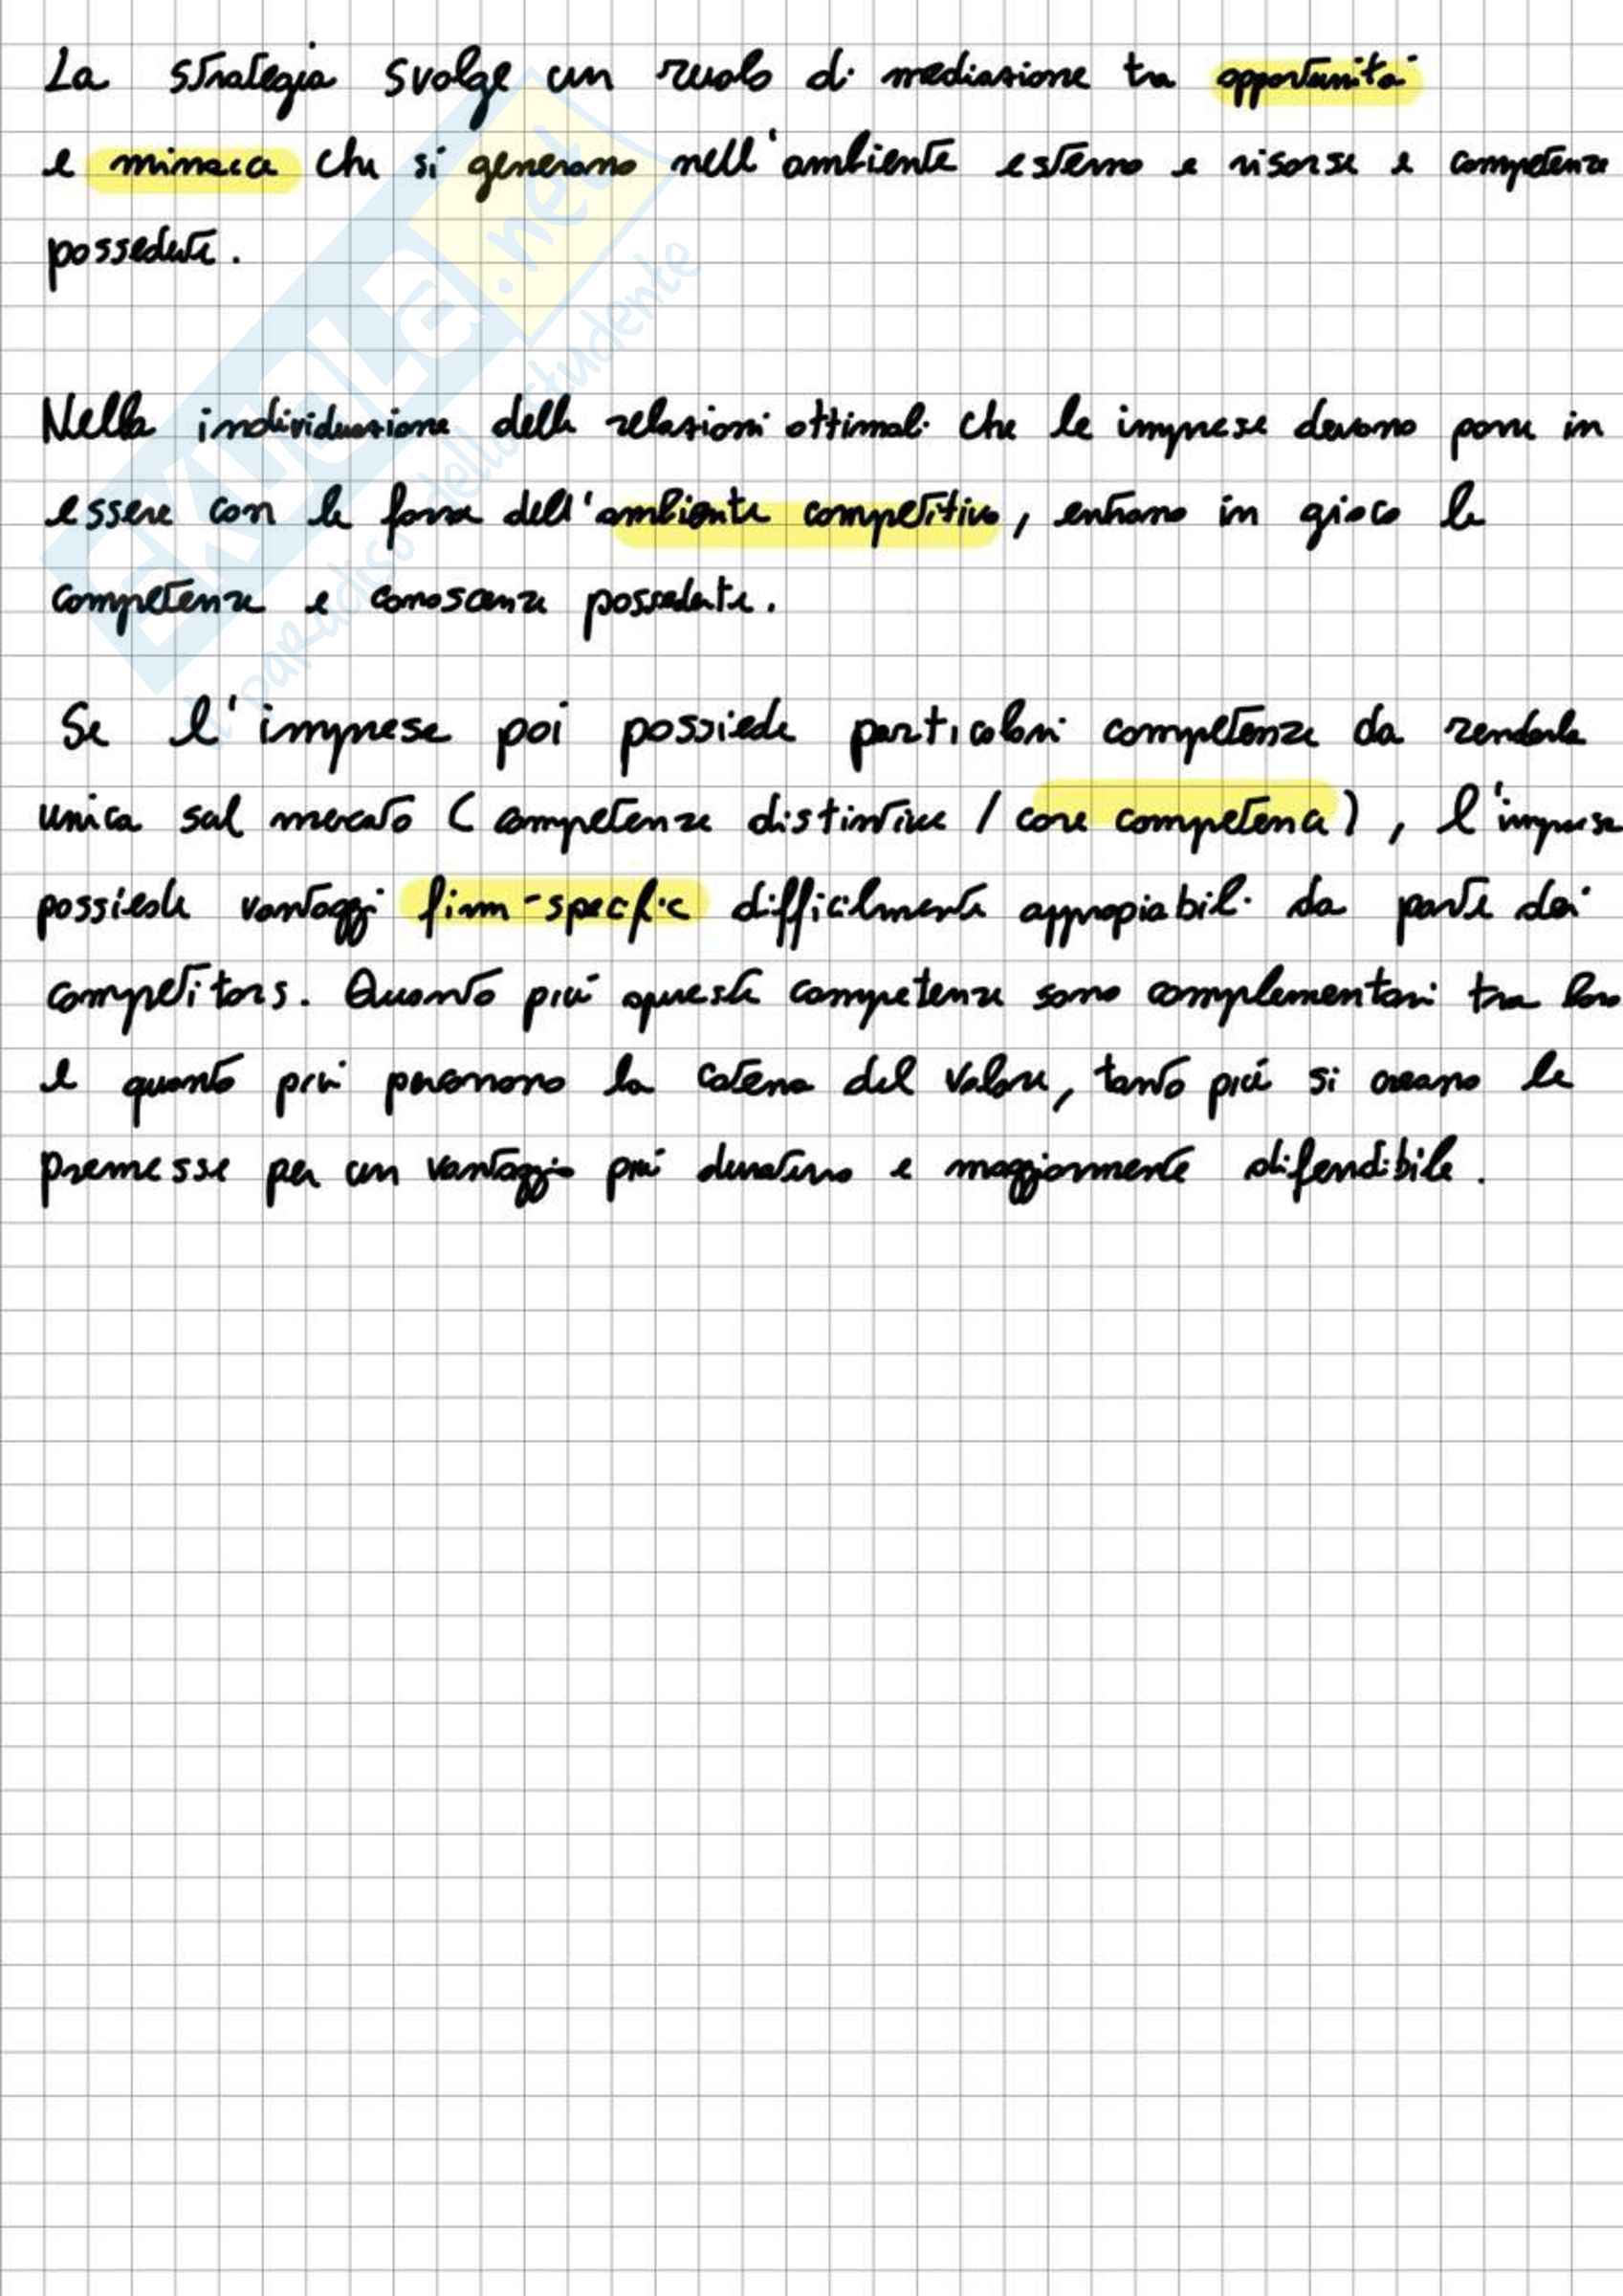 La strategia svolge un ruolo di mediazione tra opportunità
e minacce che si generano nell'ambiente esterno e risorse e competenze
possedute.
Nella individuazione delle relazioni ottimali che le imprese devono porre in
essere con le forze dell'ambiente competitivo, entrano in gioco le
competenze e conoscenze possedute.
Se l'impresa poi possiede particolari competenze da renderla
unica sul mercato (competenze distintive / core competence), l'impresa
possiede vantaggi firm-specific difficilmente appropiabili da parte dei
competitors. Quanto più queste competenze sono complementari tra loro
e quanto più permeano la catena del valore, tanto più si creano le
premesse per un vantaggio più duraturo e maggiormente difendibile.
SKUOLA.net
il paradiso dello studente